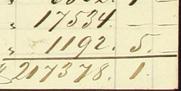 " 17534 —
" 1192. 5.
217378. 1.